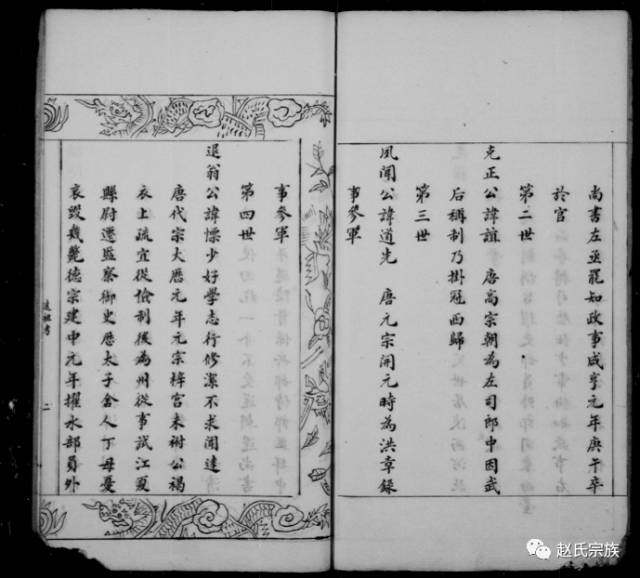 尚書左丞罷知政事咸亨元年庚午卒
於官
第二世
克正公諱誼　唐高宗朝為左司郎中因武
后稱制乃掛冠西歸
第三世
風聞公諱道先　唐元宗開元時為洪章錄
事參軍
事參軍
第四世
退翁公諱慓少好學志行修潔不求聞達
唐代宗大曆元年元宗梓宮未祔公褐
衣上疏宜從儉制後為州從事試江夏
縣尉遷監察御史歷太子舍人丁母憂
哀毀幾斃德宗建中元年擢水部員外
二
赵氏宗族